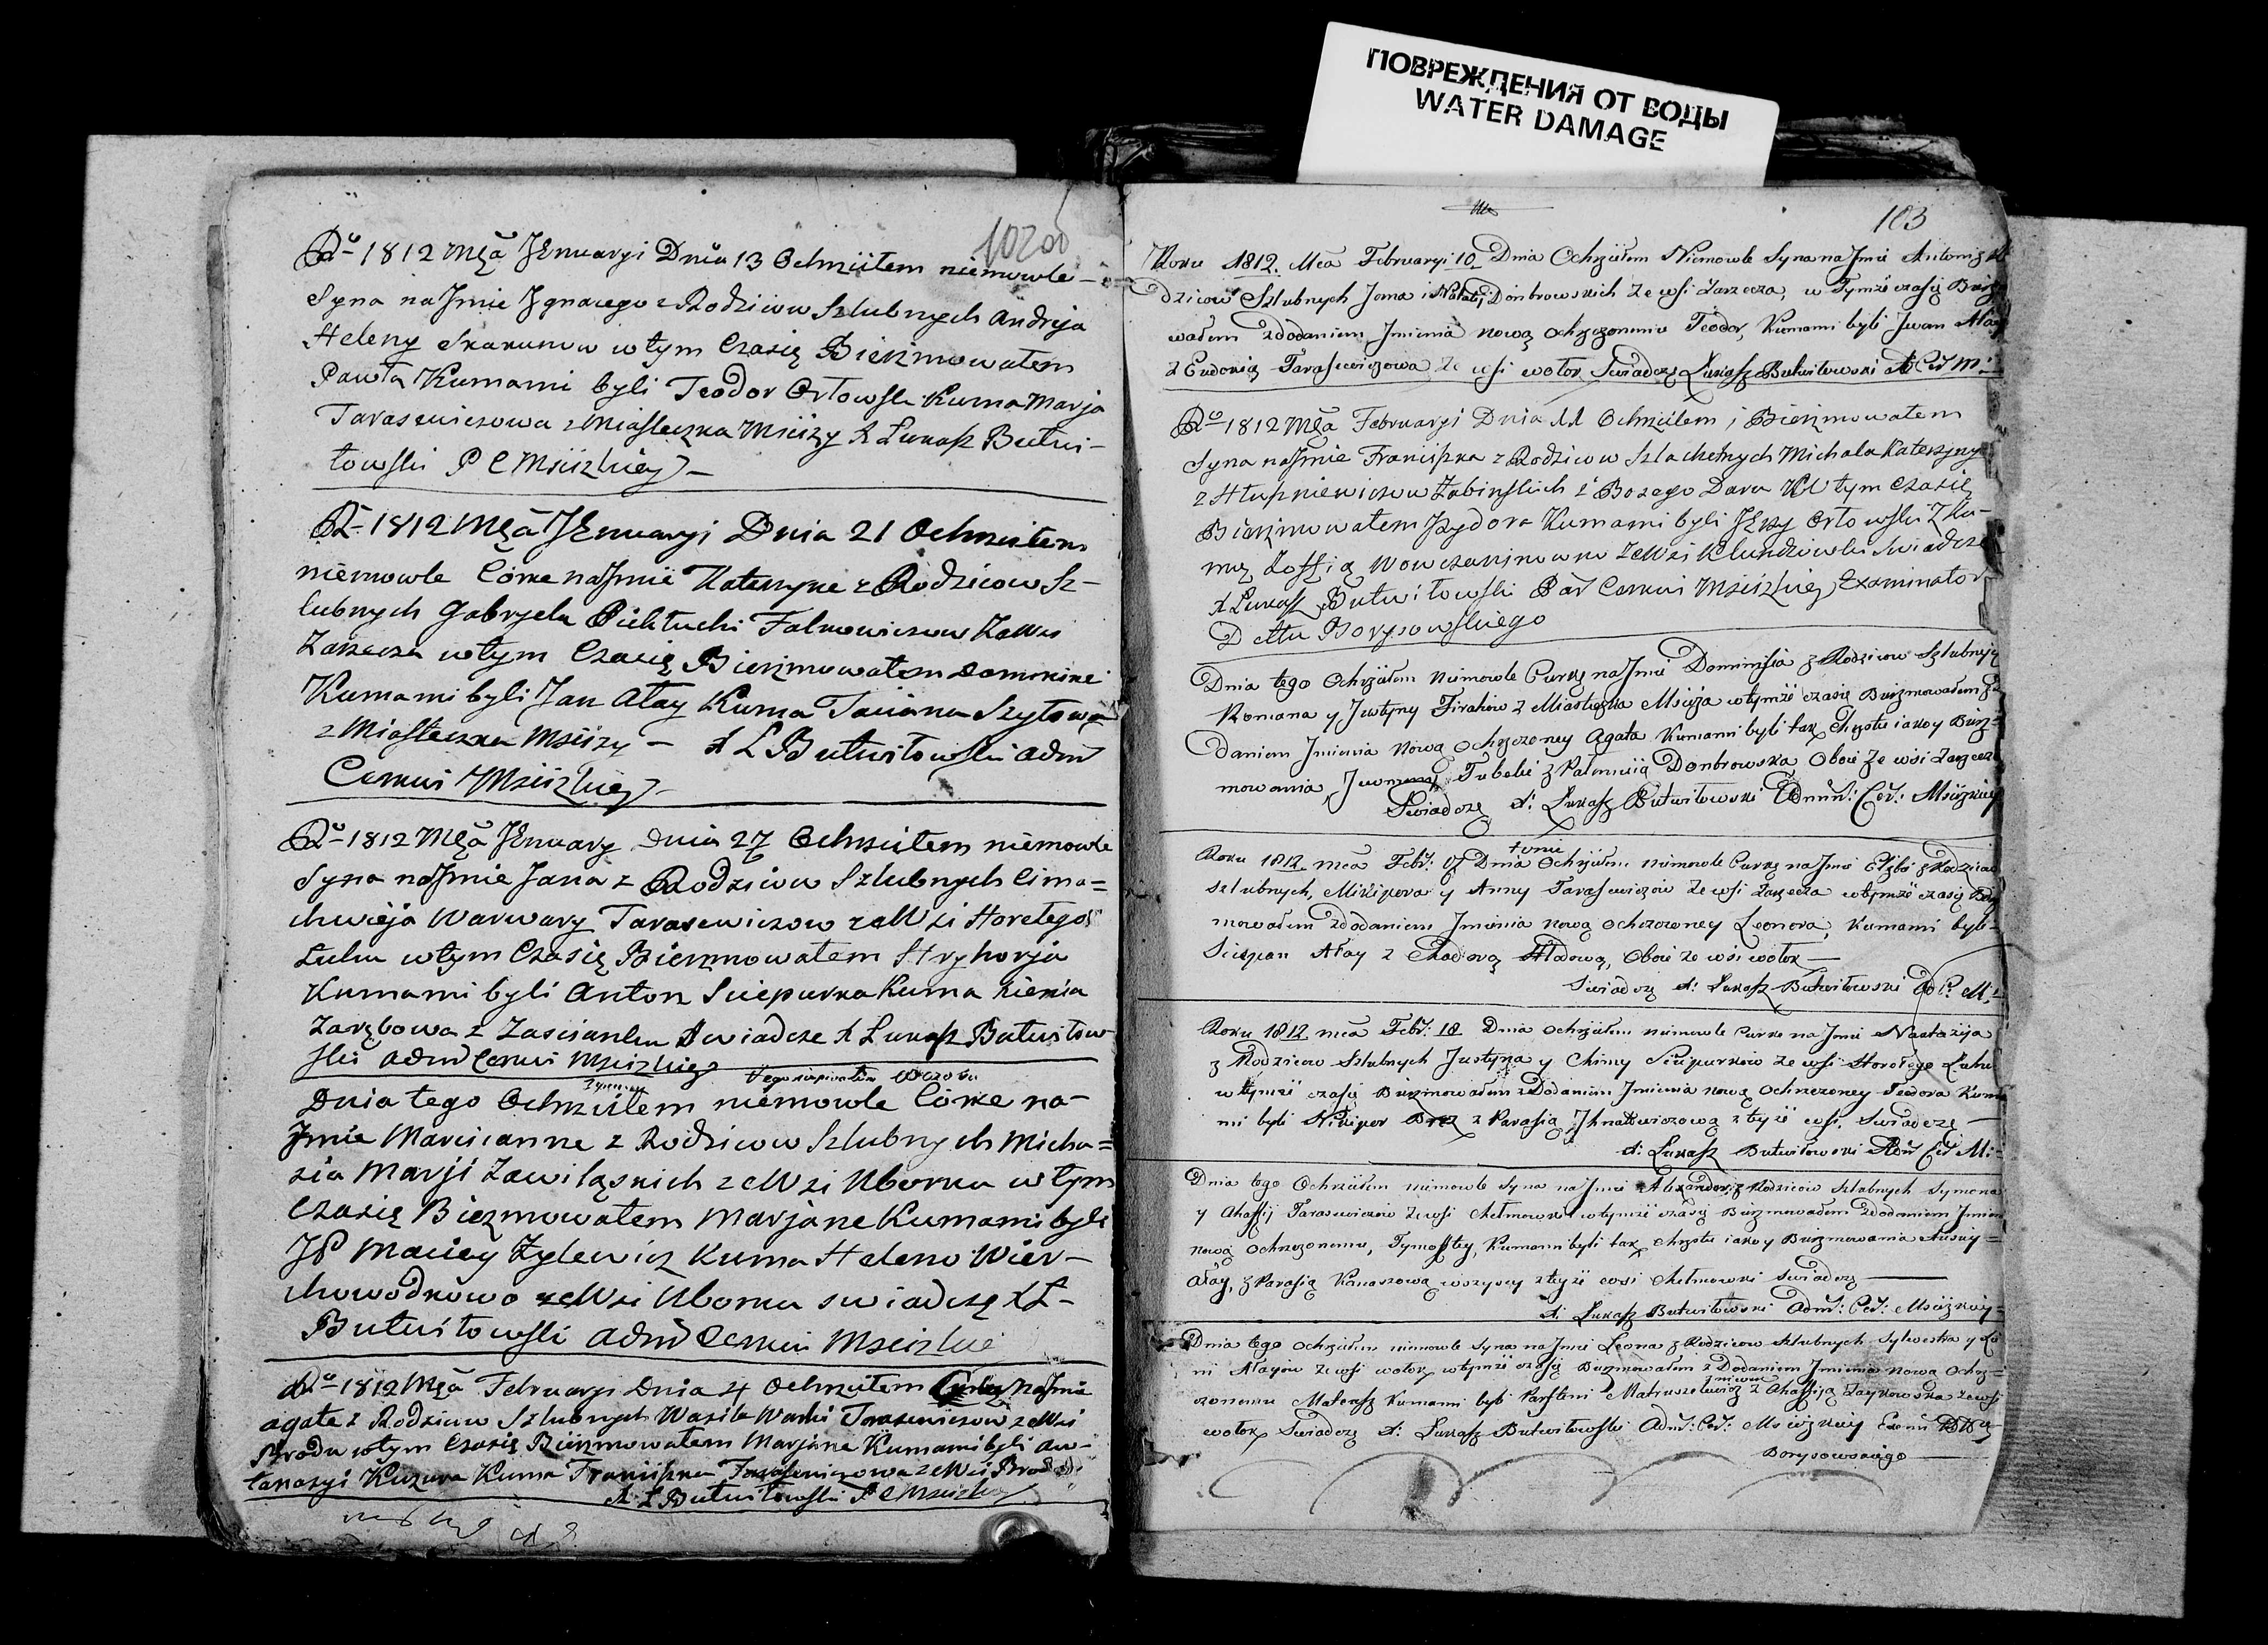 ПОВРЕЖДЕНИЯ ОТ ВОДЫ
WATER DAMAGE
102об
Rº 1812 Mçã JEnuaryi Dnia 13 Ochrzciłem niemowle
Syna na Jmie Jgnacego z Rodzicow Szlubnych Andreja
Heleny Skakunow w tym Czasię Bierzmowałem
Pawła Kumami byli Teodor Orłowski Kuma Marja
Tarasewiczowa z Miasteczka Mscizy X Łukasz Butwi-
łowski P C Mscizkiey
Rº 1812 Mçã JEnuaryi Dnia 21 Ochrzciłem
niemowle Corke na Jmie Katerzyne z Rodzicow Sz-
lubnych Gabryela Falkowiczow ze Wsi
Zarzecza w tym Czasię Bierzmowałem Dominike
Kumami byli Jan Ałay Kuma Taciana Szyłowa
z Miasteczka Mscizy – X Ł Butwiłowski Adm
Cerkwi Mscizkiey
Rº 1812 Mçã JEnuary Dnia 27 Ochrzciłem niemowle
Syna na Jmie Jana z Rodzicow Szlubnych Cima=
chwieja Warwary Tarasewiczow ze Wsi Horełego
Łuhu w tym Czasię Bierzmowałem Hryhorja
Kumami byli Anton Sciepurka Kuma Xienia
Zarębowa z Zascianku Swiadcze X Łukasz Butwiłow-
ski Adm Cerkwi Mscizkiey
Dnia tego Ochrzciłem niemowle Corke na-
Jmie Marcianne z Rodzicow Szlubnych Micha=
Marji Zawiląskich z e Wsi Uborku w tym
Czasię Biezmowałem Marjane Kumami byli
JP Maciey Żylewicz Kuma Helena Wier-
chowodkowa ze Wsi Uborku swiadczę X Ł-
Butwiłowski Adm Cerkwi Mscizkie
Rº 1812 Mçã Februaryi Dnia 4 Ochrzciłem na Jmie
Agate z Rodzicow Szlubnych Wasila Tarasewiczow z e Wsi
Brodu w tym Czasię Bierzmowałem Marjane Kumami byli Aw-
tanazyi Kuzura Kuma Franciszka Tarasewiczowa z e Wsi Brodu
X Ł Butwiłowski P C Mscizkiey
103
Roku 1812. Mca Februaryi 10 Dnia Ochrzciłem Niemowle Syna na Jmie Antoni z Ro
dzicow Szlubnych Jana i Natalij Donbrowskich ze wsi Zarzecza, w Tymże czasię Bierz
wałem z dodaniem Jmienia nowę ochrzczonemu Teodor, Kumami byli Jwan Ałay
z Eudokią Tarasewiczowa ze wsi wołok Swiadczę Łukasz Butwiłowski
Rº 1812 Mçã Februaryi Dnia 11 Ochrzciłem i Bierzmowałem
Syna na Jmie Franciszka z Rodzicow Szlachetnych Michała Katerzyny
z Hłupniewiczow Łabinskich z Bozego Daru W tym Czasię
Bierzmowałem Jzydora Kumami byli JErzy Orłowski z Ku-
mą Zoffią Wowczaninowna ze Wsi Klundziwki Swiadcze
X Łukasz Butwiłowski Par Cerkwi Mscizkiey Examinator
D ettu Borysowskiego
Dnia tego Ochrzciłem niemowle Curkę na Jmie Dominisia z Rodzicow Szlubnych
Romana y Justyny z Miasteczka Mscizża w tymże czasie Bierzmowałem z
daniem Jmienia Nowę ochrzczoney Agata Kumami byli tak Chrztu iako y Bierz=
mowania Tubelic z Pałanieią Donbrowska Oboie ze wsi Zarzecza
Swiadczę X: Łukasz Butwiłowski Admi: Cer: Mscizkiey
Roku 1812. mca Febr: 17 Dnia Ochrzciłem niemowle Curkę na Jmie Elżbi z Rodzicow
szlubnych, Mikipora y Anny Tarasewiczow ze wsi Zarzecza w tymże czasię Bierz
mowałem z dodaniem Jmienia nowę ochrzczoney Leonora, Kumami byli-
Sciepan Ałay z Chodorą Hładową, Oboie ze wsi wołok —
Swiadczę X: Łukasz Butwiłowski Ad C: M:
Roku 1812 mca Febr: 18 Dnia ochrzciłem niemowle Curke na Jmie Nastazija
z Rodzicow Szlubnych Justyna y Chimy Sciepurkow ze wsi Horołego Łuhu
w tymże czasię Bierzmowałem z Dodaniem Jmienia nowę Ochrzczoney Teodora Kuma
mi byli Nikipor z Parasią Jhnatkwiczową z tey że wsi. Swiadczę —
X: Łukasz Butwiłowski Adm Cer M:
Dnia tego Ochrzciłem niemowle Syna na Jmie Alexander, z Rodzicow Szlubnych Symona
y Ahaffij Tarasewiczow ze wsi Chełmowki w tymże czasię Bierzmowałem z Dodaniem Jmienia
nowę Ochrzczonemu, Tymoftey, Kumami byli tak Chrztu iako y Bierzmowania
Ałay, z Parasią Kanaszową wszyscy z tey że wsi Chełmowki Swiadczę —
X: Łukasz Butwiłowski Adm: Cer: Mscizkiey
Dnia tego Ochrzciłem niemowle Syna na Jmie Leona z Rodzicow Szlubnych Sylwestra y
ni Ałayow ze wsi wołok w tymże czasię Bierzmowałem z Dodaniem Jmienia nowę Ochrz-
czonemu Mateusz Kumami byli z Ahaffiją Zaykowską ze wsi
wołok Swiadczę X: Łukasz Butwiłowski Adm: Cer: Mscizkiey
Borysowskiego